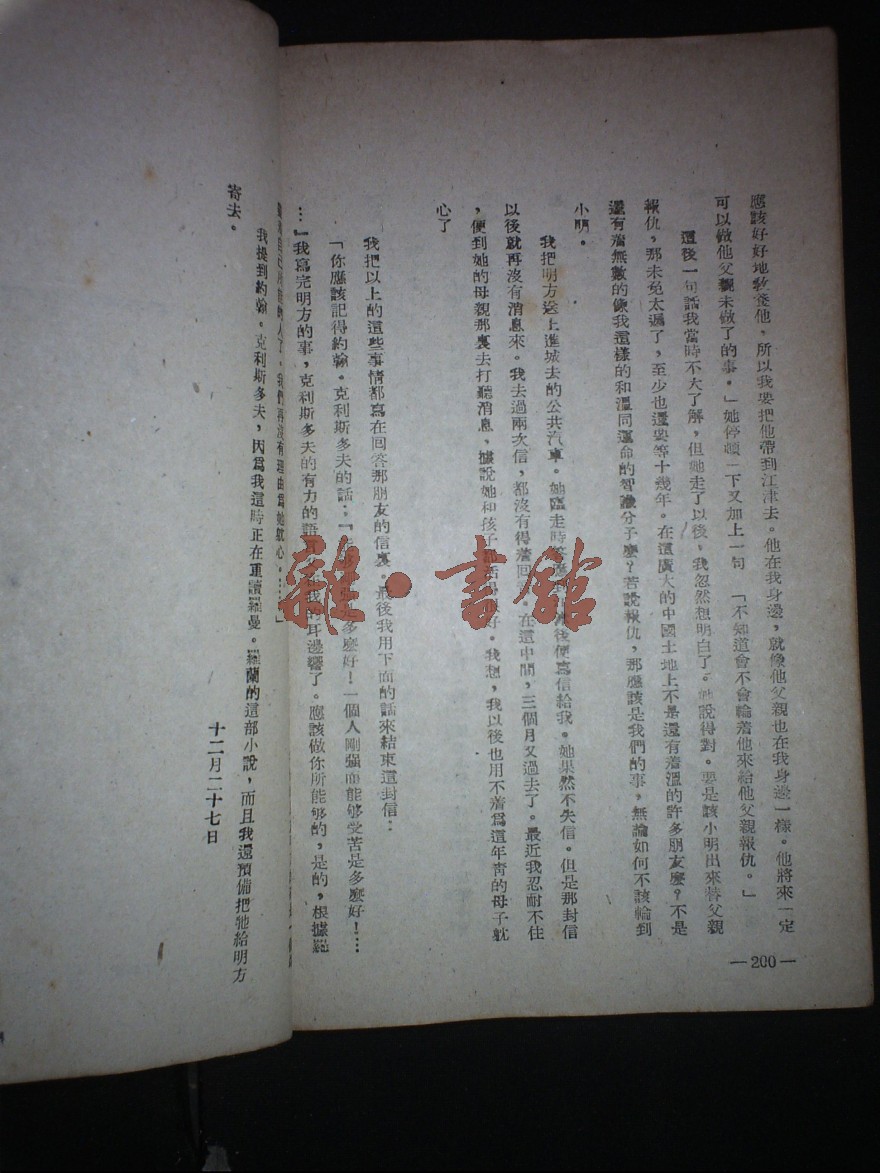 應該好好地教養他，所以我要把他帶到江津去。他在我身邊，就像他父親也在我身邊一樣。他將來一定
可以做他父親未做了的事。」她停頓一下又加上一句「不知道會不會輪着他來給他父親報仇。」
這後一句話我當時不大了解，但她走了以後，我忽然想明白了。她說得對。要是該小明出來替父親
報仇，那未免太遲了，至少也還要等十幾年。在這廣大的中國土地上不是還有着溫的許多朋友麼？不是
還有着無數的像我這樣的和溫同運命的智識分子麼？若說報仇，那應該是我們的事，無論如何不該輪到
小明。
我把明方送上進城去的公共汽車。她臨走時答應到後便寫信給我。她果然不失信。但是那封信
以後就再沒有消息來。我去過兩次信，都沒有得着回。在這中間，三個月又過去了。最近我忍耐不住
，便到她的母親那裏去打聽消息，據說她和孩子都活得很好。我想，我以後也用不着爲這年青的母子躭
心了
我把以上的這些事情都寫在回答那朋友的信裏。最後我用下面的話來結束這封信：
「你應該記得約翰。克利斯多夫的話：「多麼好！一個人剛强而能够受苦是多麼好！…
…」我寫完明方的事，克利斯多夫的有力的語我的耳邊響了。應該做你所能够的，是的，根據
人了，我們再沒有理由爲她躭心。……」
我提到約翰。克利斯多夫，因爲我這時正在重讀羅曼。羅蘭的這部小說，而且我還預備把牠給明方
寄去。
十二月二十七日
—200—
雜·書館